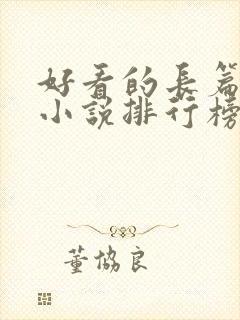 好看的長篇
小說排行榜
董協良